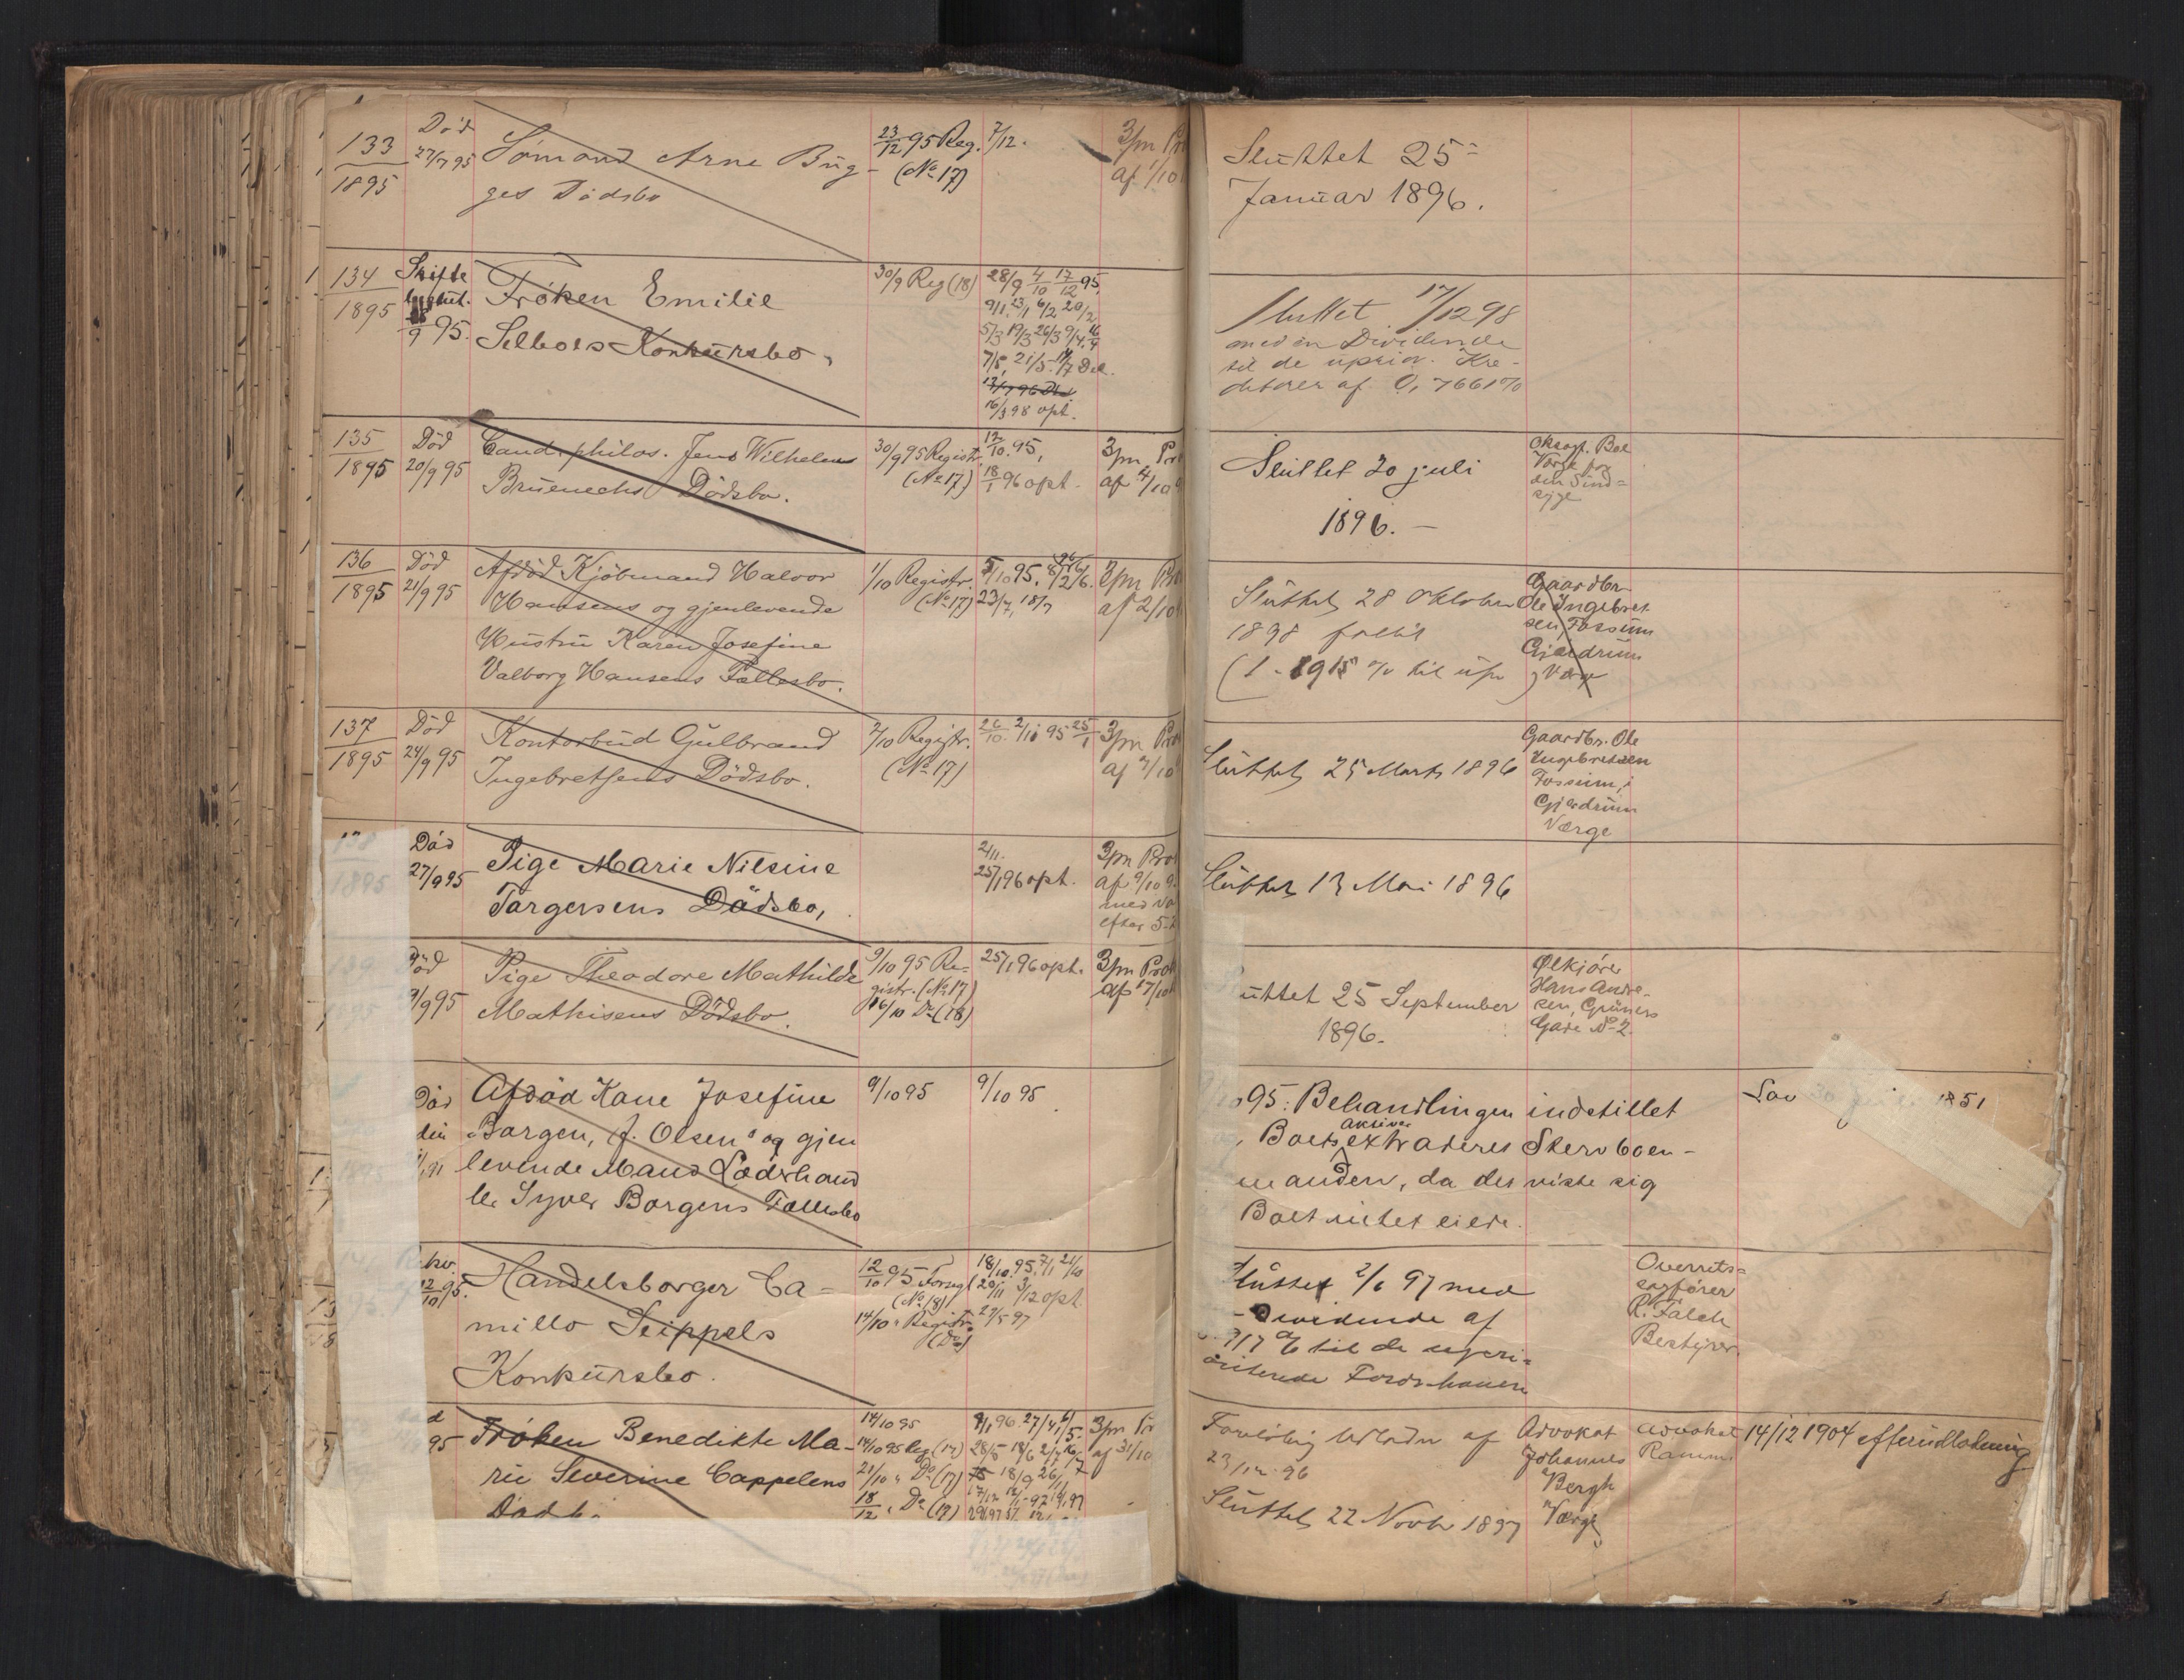 133
1895
Död
27/7 95
Sömand Arne Büg-
ges Dödsbo
23/12 95 Reg.
(No 17)
7/12.
3pm Pr
af 1/10
Slüttet 25
Janüar 1896.
134
1895
Skifte
9 95.
Fröken Emilie
Selboes Konkürsbo.
30/9 Reg (18)
28/9 4/10 17/12 95,
9/1 23/1 6/2 20/2
5/3 19/3 26/3 9/4
7/5, 21/5
16/3 98 opt.
Sluttet 17/12 98
med en Dividende
til de üprior. Kre-
ditorer af 0,7661 %
135
1895
Död
20/9 95
Cand. philos. Jens Wilhelms
Brüenechs Dödsbo.
30/9 95 Registr.
(No 17)
12/10 95,
18/1 96 opt.
3pm Pr
af 4/10
Slüttet 20 juli
1896. —
Bol
Værge for
den Sind=
syge
136
1895
Död
21/9 95
Afdöd Kjöbmand Halvor
Hansens og gjenlevende
Hüstrü Karen Josefine
Valborg Hansens Fællesbo.
1/10 Registr.
(No 17)
5/10 95.
23/7, 18/7
3pm Pro
af 2/10
Slüttet 28 Oktober
1898 fallit
Gaardbr.
Ole Ingebret
sen, Fossüm
Gjerdrüm
Værge
137
1895
Död
24/9 95
Kontorbüd Gülbrand
Ingebretsens Dödsbo.
2/10 Registr.
(No 17)
26/10. 2/11 95 25/1
3pm Pro
af 7/10
Slüttet 25 Marts 1896
Gaardbr. Ole
Ingebretsen
Fossüm, i
Gjerdrüm
Værge
1895
Död
27/9 95
Pige Marie Nilsine
Torgersens Dödsbo,
2/11.
25/1 96 opt.
3pm Pro
af 9/10 9
med
efter 5-
Slüttet 13 Mai 1896
Död
9/9 95
Pige Theodore Mathilde
Mathisens Dödsbo.
9/10 95 Re-
gistr. (No 17)
16/10 Do (18)
25/1 96 opt.
3pm Pro
af 17/10
üttet 25 September
1896.
Ölkjörer
Hans Andre-
sen, Grüners
Gade No 2.
Död
den
Afdöd Kone Josefine
Borgen, f. Olsens og gjen
levende Mand Læderhand
ler Syver Borgens Fællesbo
9/10 95
9/10 95
95. Behandlingen indstillet
Boets aktiver extraderes Stervboen-
manden, da det viste sig
Boet intet eiede.
Lov 1851
12/10 95.
Handelsborger Ca-
millo Seippels
Konkürsbo.
12/10 95 Forsegl
(No 18)
14/10 " Registr.
(Do)
18/10 95. 7/11 21/10
20/11 3/12 opt
29/5 97
Slüttet 2/6 97 med
Dividende af
717 % til de üpri-
oriterede Fordringer
Overrets=
sagförer
R. Falch
Bestyrer.
95
Fröken Benedikte Ma-
rie Severine Cappelens
Dödsb
14/10 95
14/10 95 Reg (17)
21/10 " Do (17)
18/12 " Do (17)
3pm Pr
af 31/10
Forelöbig Udlodn. af
23/12 96
Slüttet 22 Novbr 1897
Advokat
Johannes
Bergh
Værge
Advokat
Ramm.
14/12 1904 efterüdlodning